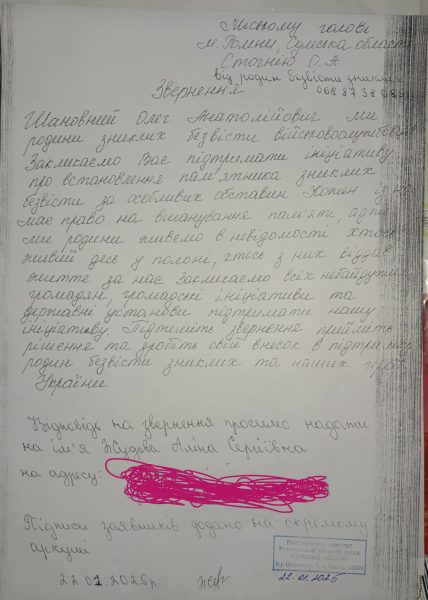 Міському голові
м. Ромни, Сумська області
Стогнію О. А
від родин безвісти зниклих
Звернення 068 87 38
Шановний Олег Анатолійович ми
родини зниклих безвісти військовослужбовців
Закликаємо Вас підтримати ініціативу
про встановлення пам'ятника зниклих
безвісти за особливих обставин Кожен із них
має право на вшанування пам'яті, адже
ми родини живемо в невідомості хтось
живий десь у полоні, хтось з них віддав
життя за нас Закликаємо всіх небайдужих
громадян, громадскі ініціативи та
державні установи підтримати нашу
ініціативу. Підпишіть звернення прийміть
рішення та зробіть свій внесок в підтримку
родин безвісти зниклих та наших
України
Відповідь на звернення просимо надати
на ім'я Жудова Аліна Сергіївна
на адресу:
Підписи заявників додано на окремому
аркуші
22.01.2025р.
Виконавчий комітет
Роменської міської ради
Сумської області
22.01.2025